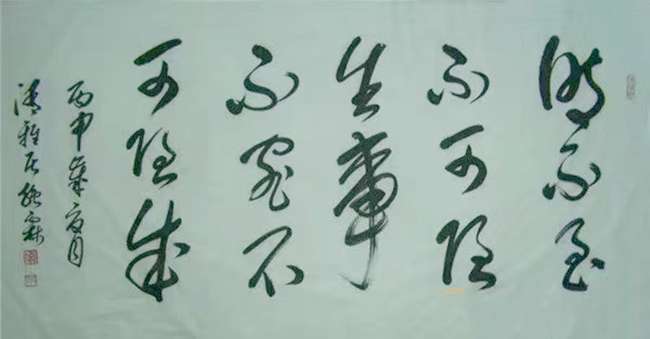 时不至
不可强
生事
不究不
可强成
丙申岁夏月
清雅居